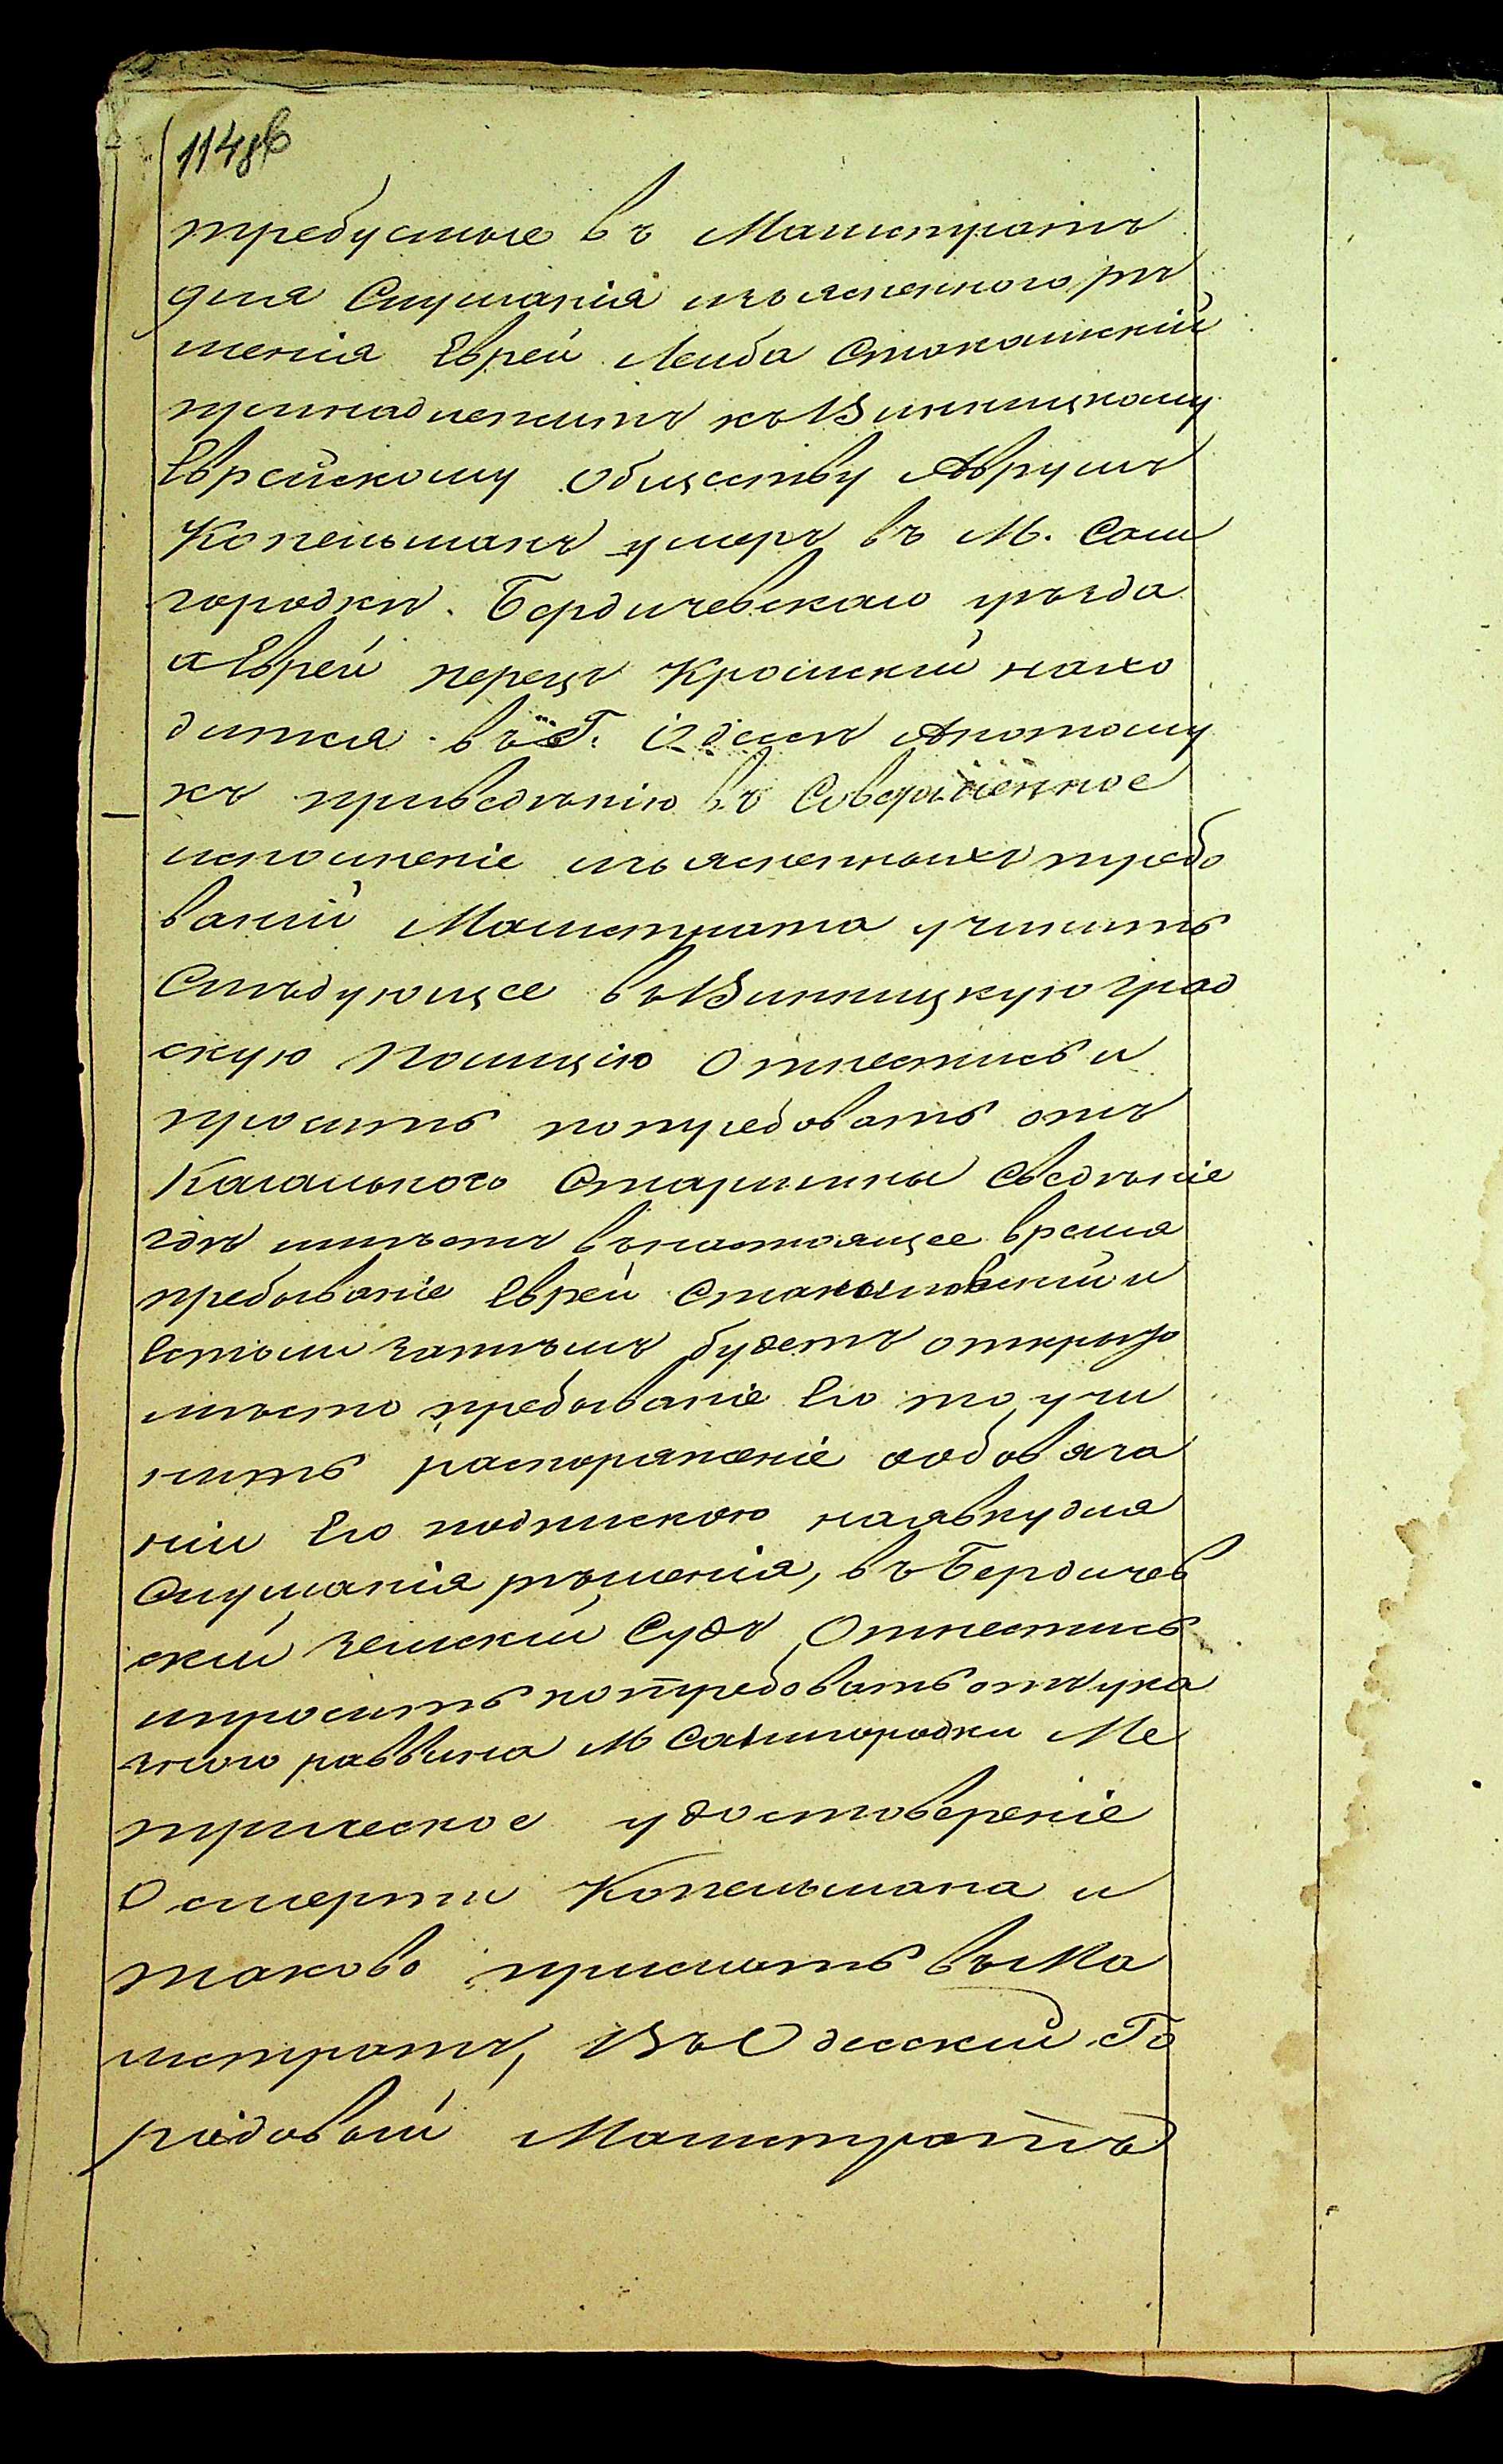 1148б
требуемые въ Магистратъ
для Слушанія изъясненнаго рѣ
шенія Еврей Лейба Стокалский
принадлежитъ къ Винницкому
Еврейскому обществу Аврумъ
Копельманъ умеръ въ М. Сам
городки. Бердичевскаго уѣзда
а Еврей перецъ Кролский нахо
дится въ Г. Одессѣ А потому
къ приведѣнію въ Совершенное
исполненіе изъясненныхъ требо
ваній Магистрата учинить
Слѣдующее въ Винницкую град
скую Полицію отнестись и
просить потребовать отъ
Кагального Старшины Сведѣніе
гдѣ имѣетъ въ настоящее время
пребываніе Еврей Стакалювский и
Естьли затѣмъ будетъ открыто
мѣсто пребываніе Его то учи
нить распоряженіе о обовяза
ніи Его подпискою на явку для
Слушанія рѣшенія, въ Бердичев
ский Земский Судъ Отнестись
и просить потребовать отъ ука
зного раввина М Самгородки Ме
трическое удостоверѣніе
О смерти Копельмана и
таково прислать въ Ма
гистратъ, Въ Одесский Го
родовый Магистратъ